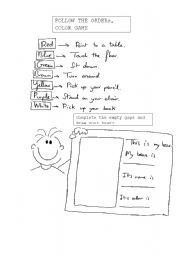 FOLLOW THE ORDERS.
COLOR GAME
Red → Point to a table.
Blue → Touch the floor.
Green → Sit down.
Brown → Turn around
Yellow → Pick up your pencil.
Purple → Stand on your chair.
White → Pick up your book
Complete the empty gaps and
draw your bear
This is my bear
My bear is
It's name is
It's color is